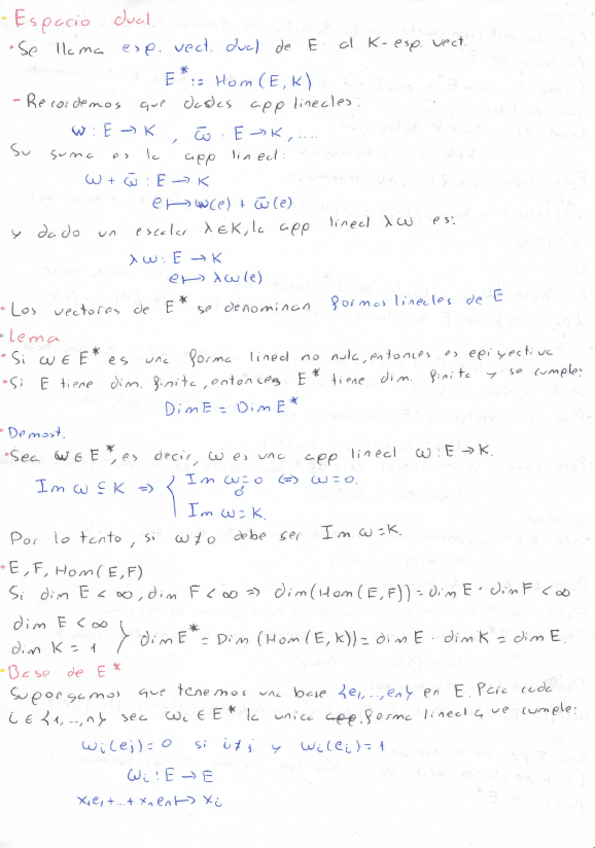 Espacio dual.
• Se llama esp. vect. dual de E al K-esp. vect.
E* := Hom(E, K)
- Recordemos que dadas app lineales:
ω : E → K , ω̄ : E → K, ....
Su suma es la app lineal:
ω + ω̄ : E → K
e ↦ ω(e) + ω̄(e)
y dado un escalar λ ∈ K, la app lineal λω es:
λω : E → K
e ↦ λω(e)
• Los vectores de E* se denominan formas lineales de E
• Lema
• Si ω ∈ E* es una forma lineal no nula, entonces es epiyectiva
• Si E tiene dim. finita, entonces E* tiene dim. finita y se cumple:
Dim E = Dim E*
• Demost.
• Sea ω ∈ E*, es decir, ω es una app lineal ω: E → K.
Im ω ⊆ K ⇒ { Im ω = 0 ⇔ ω = 0.
ó
Im ω = K.
Por lo tanto, si ω ≠ 0 debe ser Im ω = K.
• E, F, Hom(E, F)
Si dim E < ∞, dim F < ∞ ⇒ dim(Hom(E, F)) = dim E · dim F < ∞
dim E < ∞
dim K = 1 } dim E* = Dim (Hom(E, K)) = dim E · dim K = dim E.
• Base de E*
Supongamos que tenemos una base {e1, ..., en} en E. Para cada
i ∈ {1, ..., n} sea ωi ∈ E* la unica app. forma lineal que cumple:
ωi(ej) = 0 si i ≠ j y ωi(ei) = 1
ωi : E → E
x1e1 + ... + xnen ↦ xi